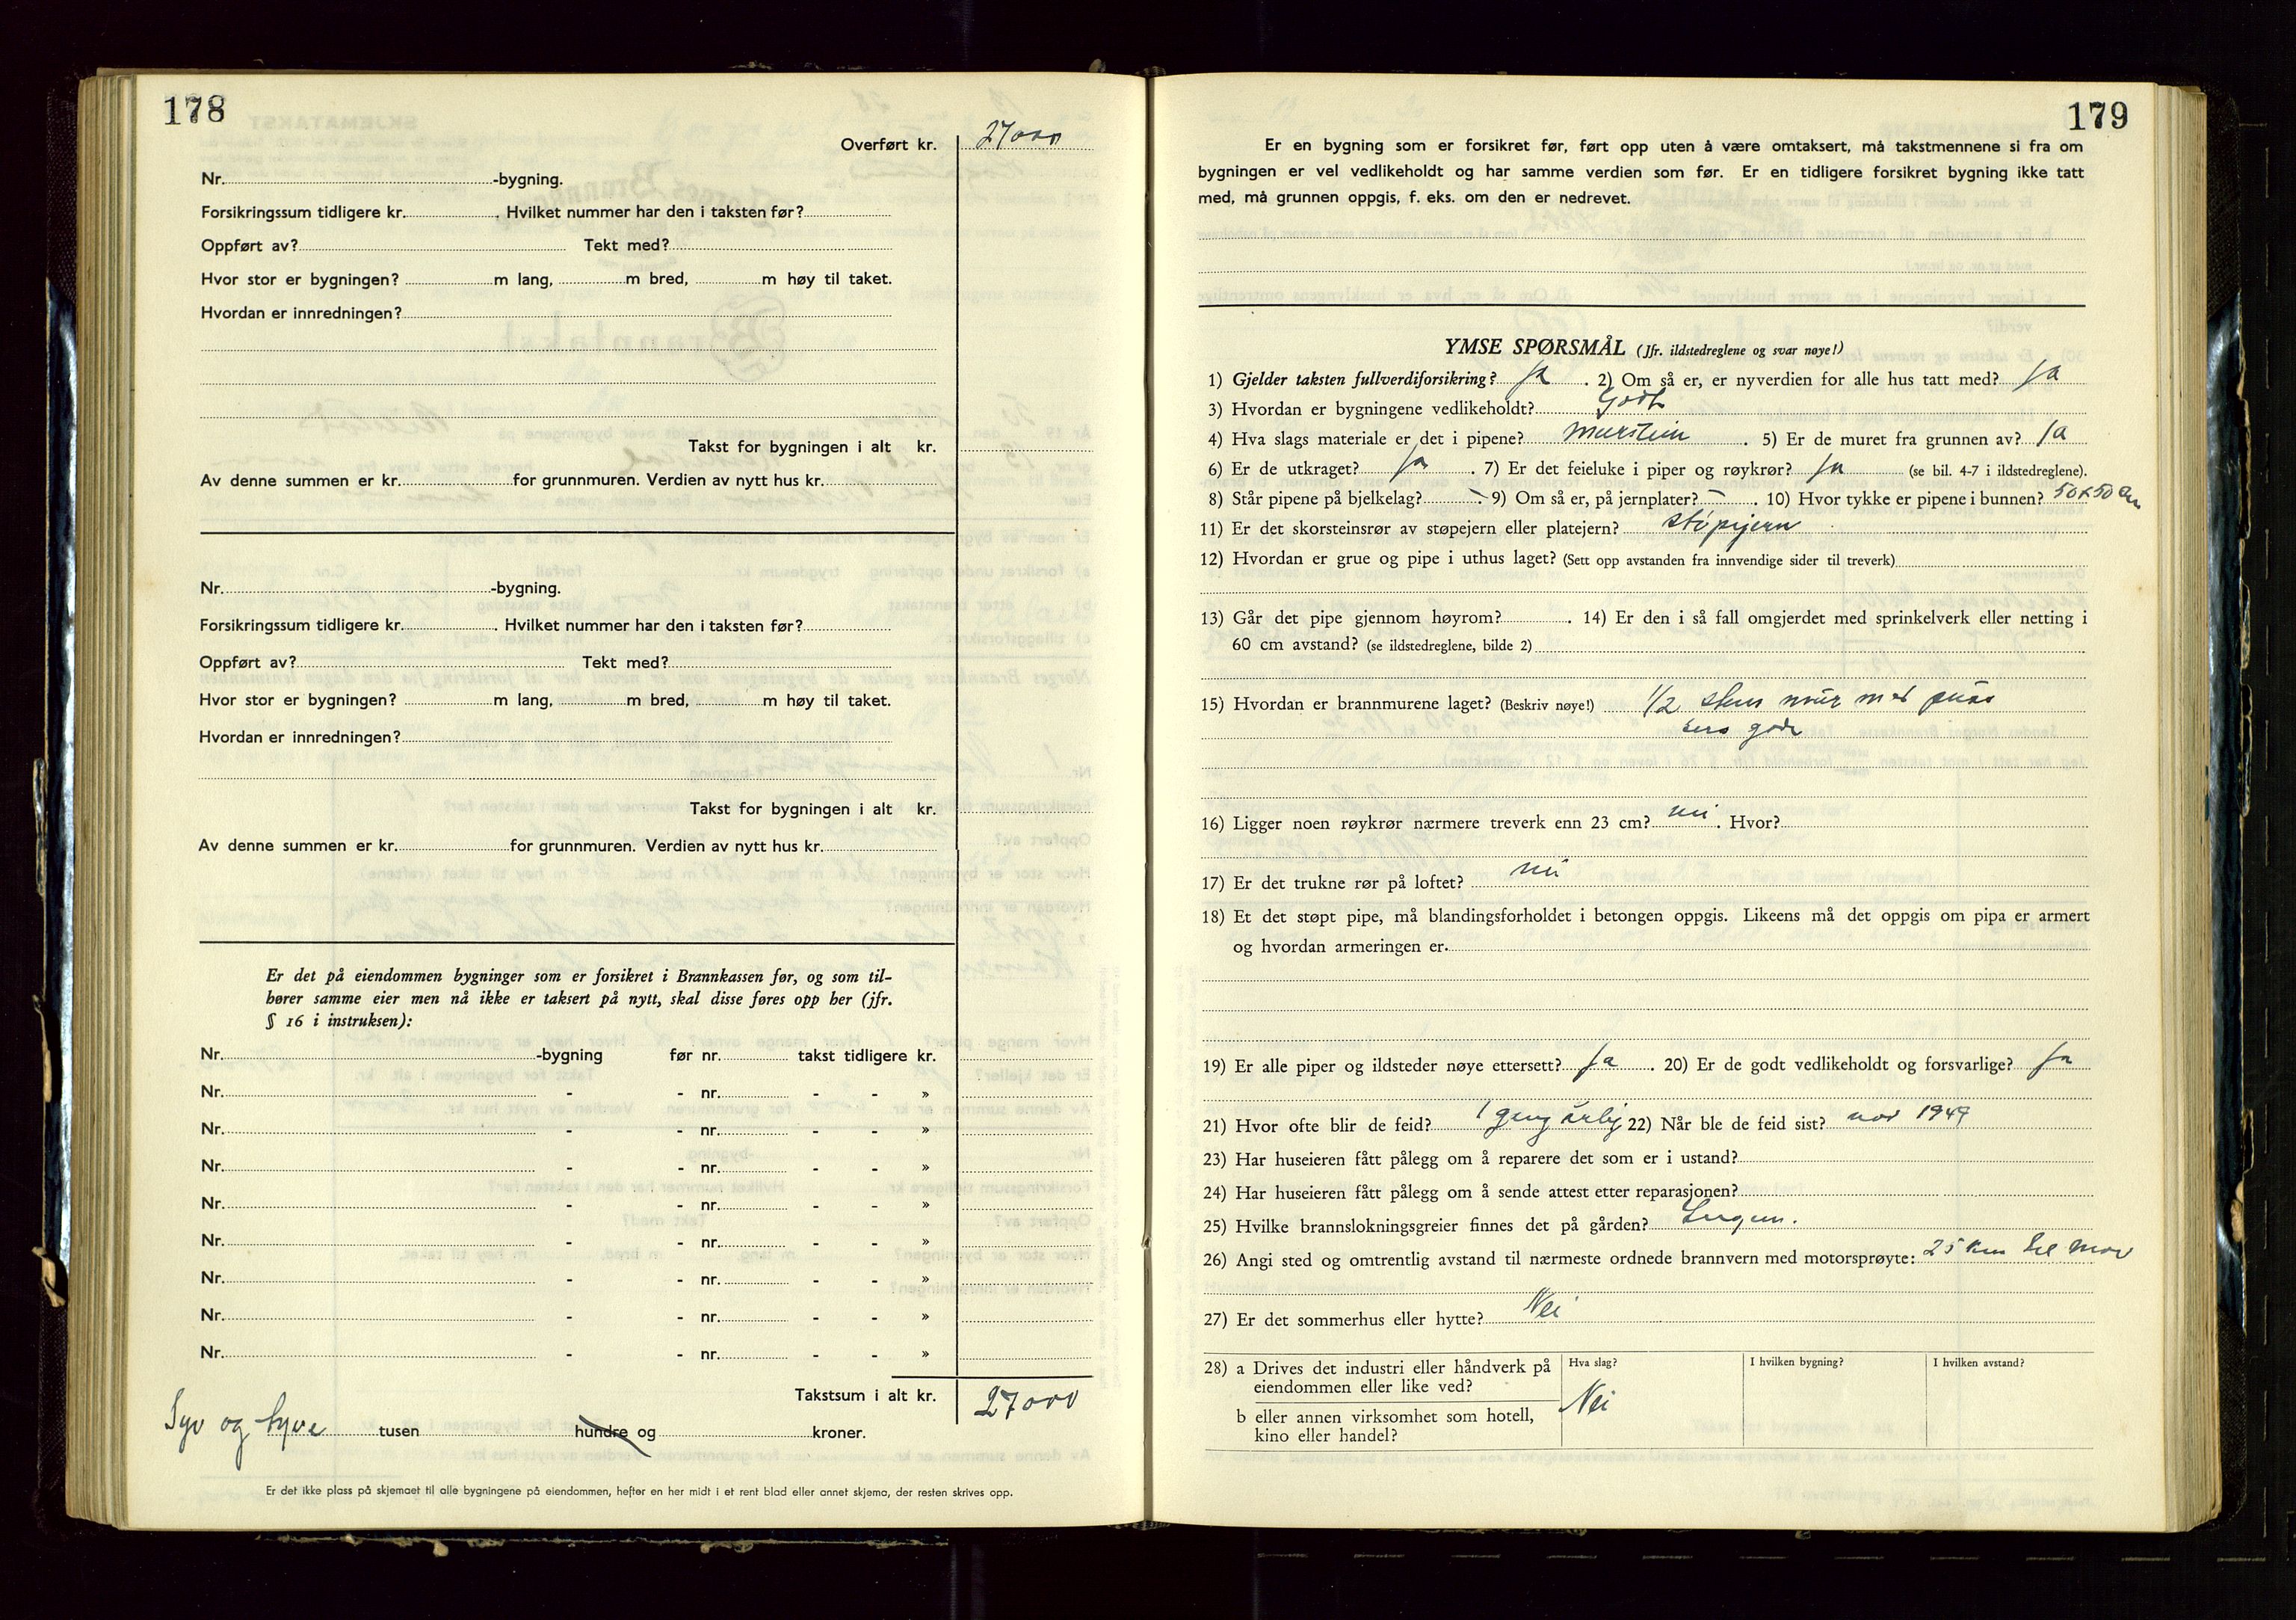 178
Overført kr. 27000
Nr. -bygning.
Forsikringssum tidligere kr. . Hvilket nummer har den i taksten før?
Oppført av? Tekt med?
Hvor stor er bygningen? m lang, m bred, m høy til taket.
Hvordan er innredningen?
Takst for bygningen i alt kr.
Av denne summen er kr. for grunnmuren. Verdien av nytt hus kr.
Nr. -bygning.
Forsikringssum tidligere kr. . Hvilket nummer har den i taksten før?
Oppført av? Tekt med?
Hvor stor er bygningen? m lang, m bred, m høy til taket.
Hvordan er innredningen?
Takst for bygningen i alt kr.
Av denne summen er kr. for grunnmuren. Verdien av nytt hus kr.
Er det på eiendommen bygninger som er forsikret i Brannkassen før, og som til-
hører samme eier men nå ikke er taksert på nytt, skal disse føres opp her (jfr.
§ 16 i instruksen):
Nr. -bygning før nr. takst tidligere kr.
Nr. - - nr. - - »
Nr. - - nr. - - »
Nr. - - nr. - - »
Nr. - - nr. - - »
Nr. - - nr. - - »
Nr. - - nr. - - »
Nr. - - nr. - - »
Nr. - - nr. - - »
Takstsum i alt kr. 27000
Syv og tyve tusen hundre og kroner.
Er det ikke plass på skjemaet til alle bygningene på eiendommen, hefter en her midt i et rent blad eller annet skjema, der resten skrives opp.
179
Er en bygning som er forsikret før, ført opp uten å være omtaksert, må takstmennene si fra om
bygningen er vel vedlikeholdt og har samme verdien som før. Er en tidligere forsikret bygning ikke tatt
med, må grunnen oppgis, f. eks. om den er nedrevet.
YMSE SPØRSMÅL (Jfr. ildstedreglene og svar nøye!)
1) Gjelder taksten fullverdiforsikring? Ja . 2) Om så er, er nyverdien for alle hus tatt med? Ja
3) Hvordan er bygningene vedlikeholdt? Godt
4) Hva slags materiale er det i pipene? murstein . 5) Er de muret fra grunnen av? Ja
6) Er de utkraget? Ja . 7) Er det feieluke i piper og røykrør? Ja (se bil. 4-7 i ildstedreglene).
8) Står pipene på bjelkelag? - 9) Om så er, på jernplater? - . 10) Hvor tykke er pipene i bunnen? 50x50 cm
11) Er det skorsteinsrør av støpejern eller platejern? støpejern
12) Hvordan er grue og pipe i uthus laget? (Sett opp avstanden fra innvendige sider til treverk)
13) Går det pipe gjennom høyrom? . 14) Er den i så fall omgjerdet med sprinkelverk eller netting i
60 cm avstand? (se ildstedreglene, bilde 2)
15) Hvordan er brannmurene laget? (Beskriv nøye!) 1/2 stens mur med puss
gode
16) Ligger noen røykrør nærmere treverk enn 23 cm? nei . Hvor?
17) Er det trukne rør på loftet? nei
18) Et det støpt pipe, må blandingsforholdet i betongen oppgis. Likeens må det oppgis om pipa er armert
og hvordan armeringen er.
19) Er alle piper og ildsteder nøye ettersett? Ja . 20) Er de godt vedlikeholdt og forsvarlige? Ja
21) Hvor ofte blir de feid? 1 gang årlig 22) Når ble de feid sist? nov 1949
23) Har huseieren fått pålegg om å reparere det som er i ustand?
24) Har huseieren fått pålegg om å sende attest etter reparasjonen?
25) Hvilke brannslokningsgreier finnes det på gården? Ingen.
26) Angi sted og omtrentlig avstand til nærmeste ordnede brannvern med motorsprøyte: 25 km til
27) Er det sommerhus eller hytte? Nei
28) a Drives det industri eller håndverk på Hva slag? I hvilken bygning? I hvilken avstand?
eiendommen eller like ved? Nei
b eller annen virksomhet som hotell,
kino eller handel?